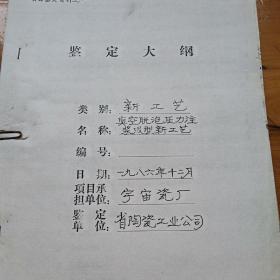 鉴定大纲
类别：新工艺
真空脱泡压力注
名称：浆成型新工艺
编号：
日期：一九八六年十二月
项目承
担单位：宇宙瓷厂
鉴定
单位：省陶瓷工业公司